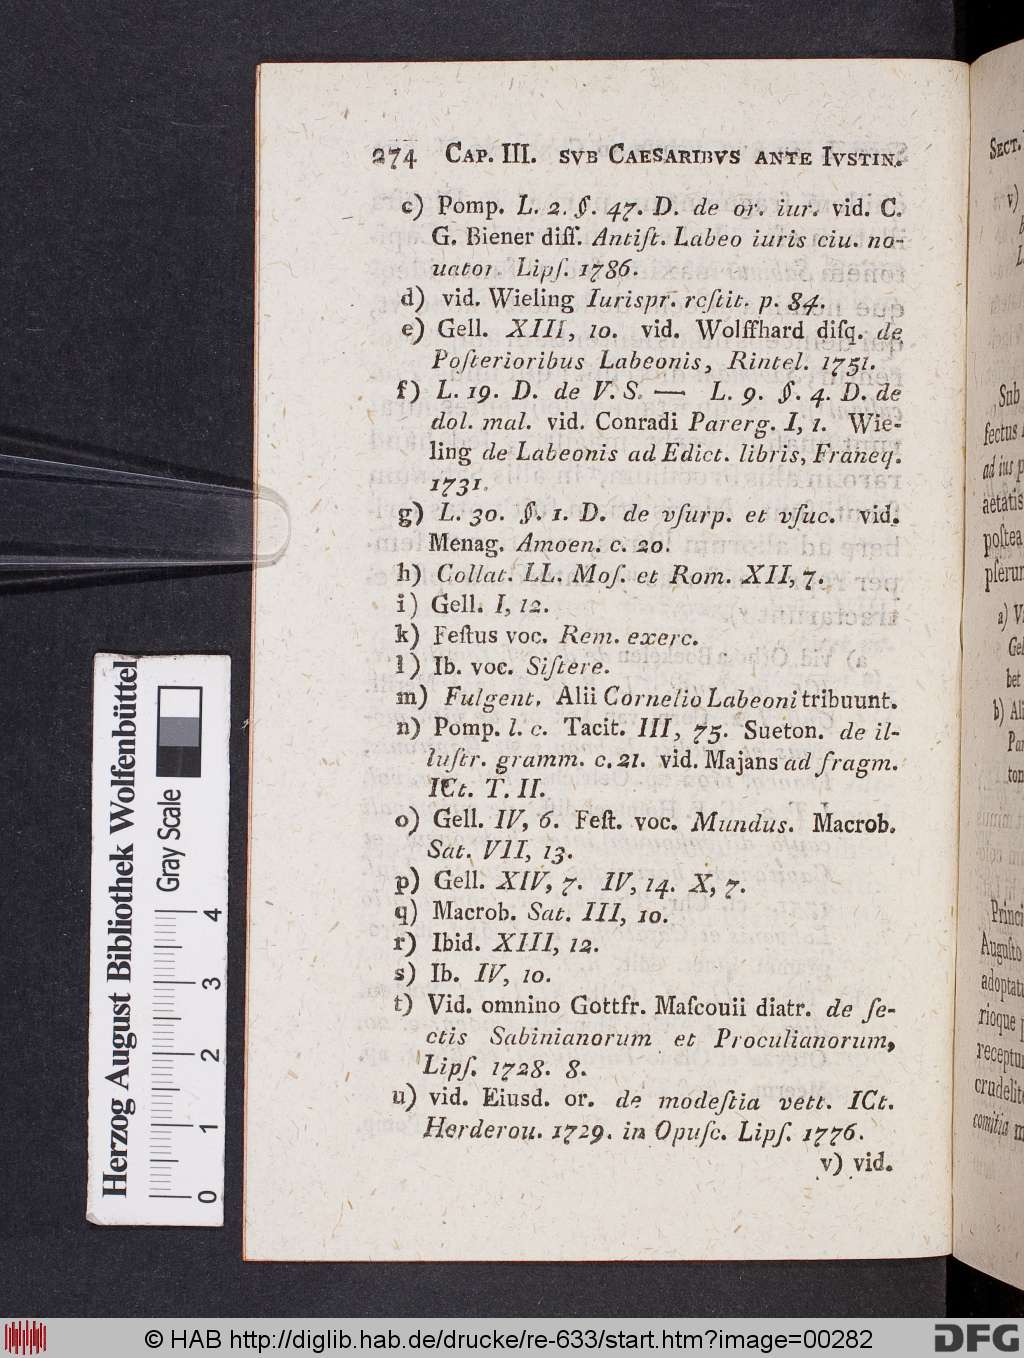 274 CAP. III. SVB CAESARIBVS ANTE IVSTIN.
c) Pomp. L. 2. §. 47. D. de or. iur. vid. C.
G. Biener diſſ. Antiſt. Labeo iuris ciu. no-
uator. Lipſ. 1786.
d) vid. Wieling Iurispr. reſtit. p. 84.
e) Gell. XIII, 10. vid. Wolffhard diſq. de
Poſterioribus Labeonis, Rintel. 1751.
f) L. 19. D. de V. S. — L. 9. §. 4. D. de
dol. mal. vid. Conradi Parerg. I, 1. Wie-
ling de Labeonis ad Edict. libris, Franeq.
1731.
g) L. 30. §. 1. D. de vſurp. et vſuc. vid.
Menag. Amoen. c. 20.
h) Collat. LL. Moſ. et Rom. XII, 7.
i) Gell. I, 12.
k) Feſtus voc. Rem. exerc.
l) Ib. voc. Siſtere.
m) Fulgent. Alii Cornelio Labeoni tribuunt.
n) Pomp. l. c. Tacit. III, 75. Sueton. de il-
luſtr. gramm. c. 21. vid. Majans ad fragm.
ICt. T. II.
o) Gell. IV, 6. Feſt. voc. Mundus. Macrob.
Sat. VII, 13.
p) Gell. XIV, 7. IV, 14. X, 7.
q) Macrob. Sat. III, 10.
r) Ibid. XIII, 12.
s) Ib. IV, 10.
t) Vid. omnino Gottfr. Maſcouii diatr. de ſe-
ctis Sabinianorum et Proculianorum,
Lipſ. 1728. 8.
u) vid. Eiusd. or. de modeſtia vett. ICt.
Herderou. 1729. in Opuſc. Lipſ. 1776.
v) vid.
SECT.
v)
Sub
fectus
ad ius p
aetatis
poſtea
pſerun
a) V
Gel
bet
b) Ali
Par
ton
Princi
Auguſto
adoptati
rioque p
receptum
crudelit
comitia m
Herzog August Bibliothek Wolfenbüttel
Gray Scale
0 1 2 3 4
© HAB http://diglib.hab.de/drucke/re-633/start.htm?image=00282
DFG